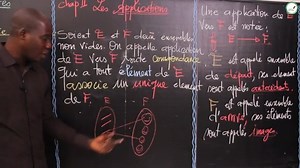 chap II Les Applications
Soient E et F deux ensembles
non vides. On appelle application
de E vers F toute correspondance
qui a tout élément de E
associe un unique élément
de F.
E F
Une application de E
vers F est notée :
E → F
E est appelé ensemble
de départ, ses éléments
sont appelés antécédents.
F est appelé ensemble
d'arrivé, ses éléments
sont appelés images.